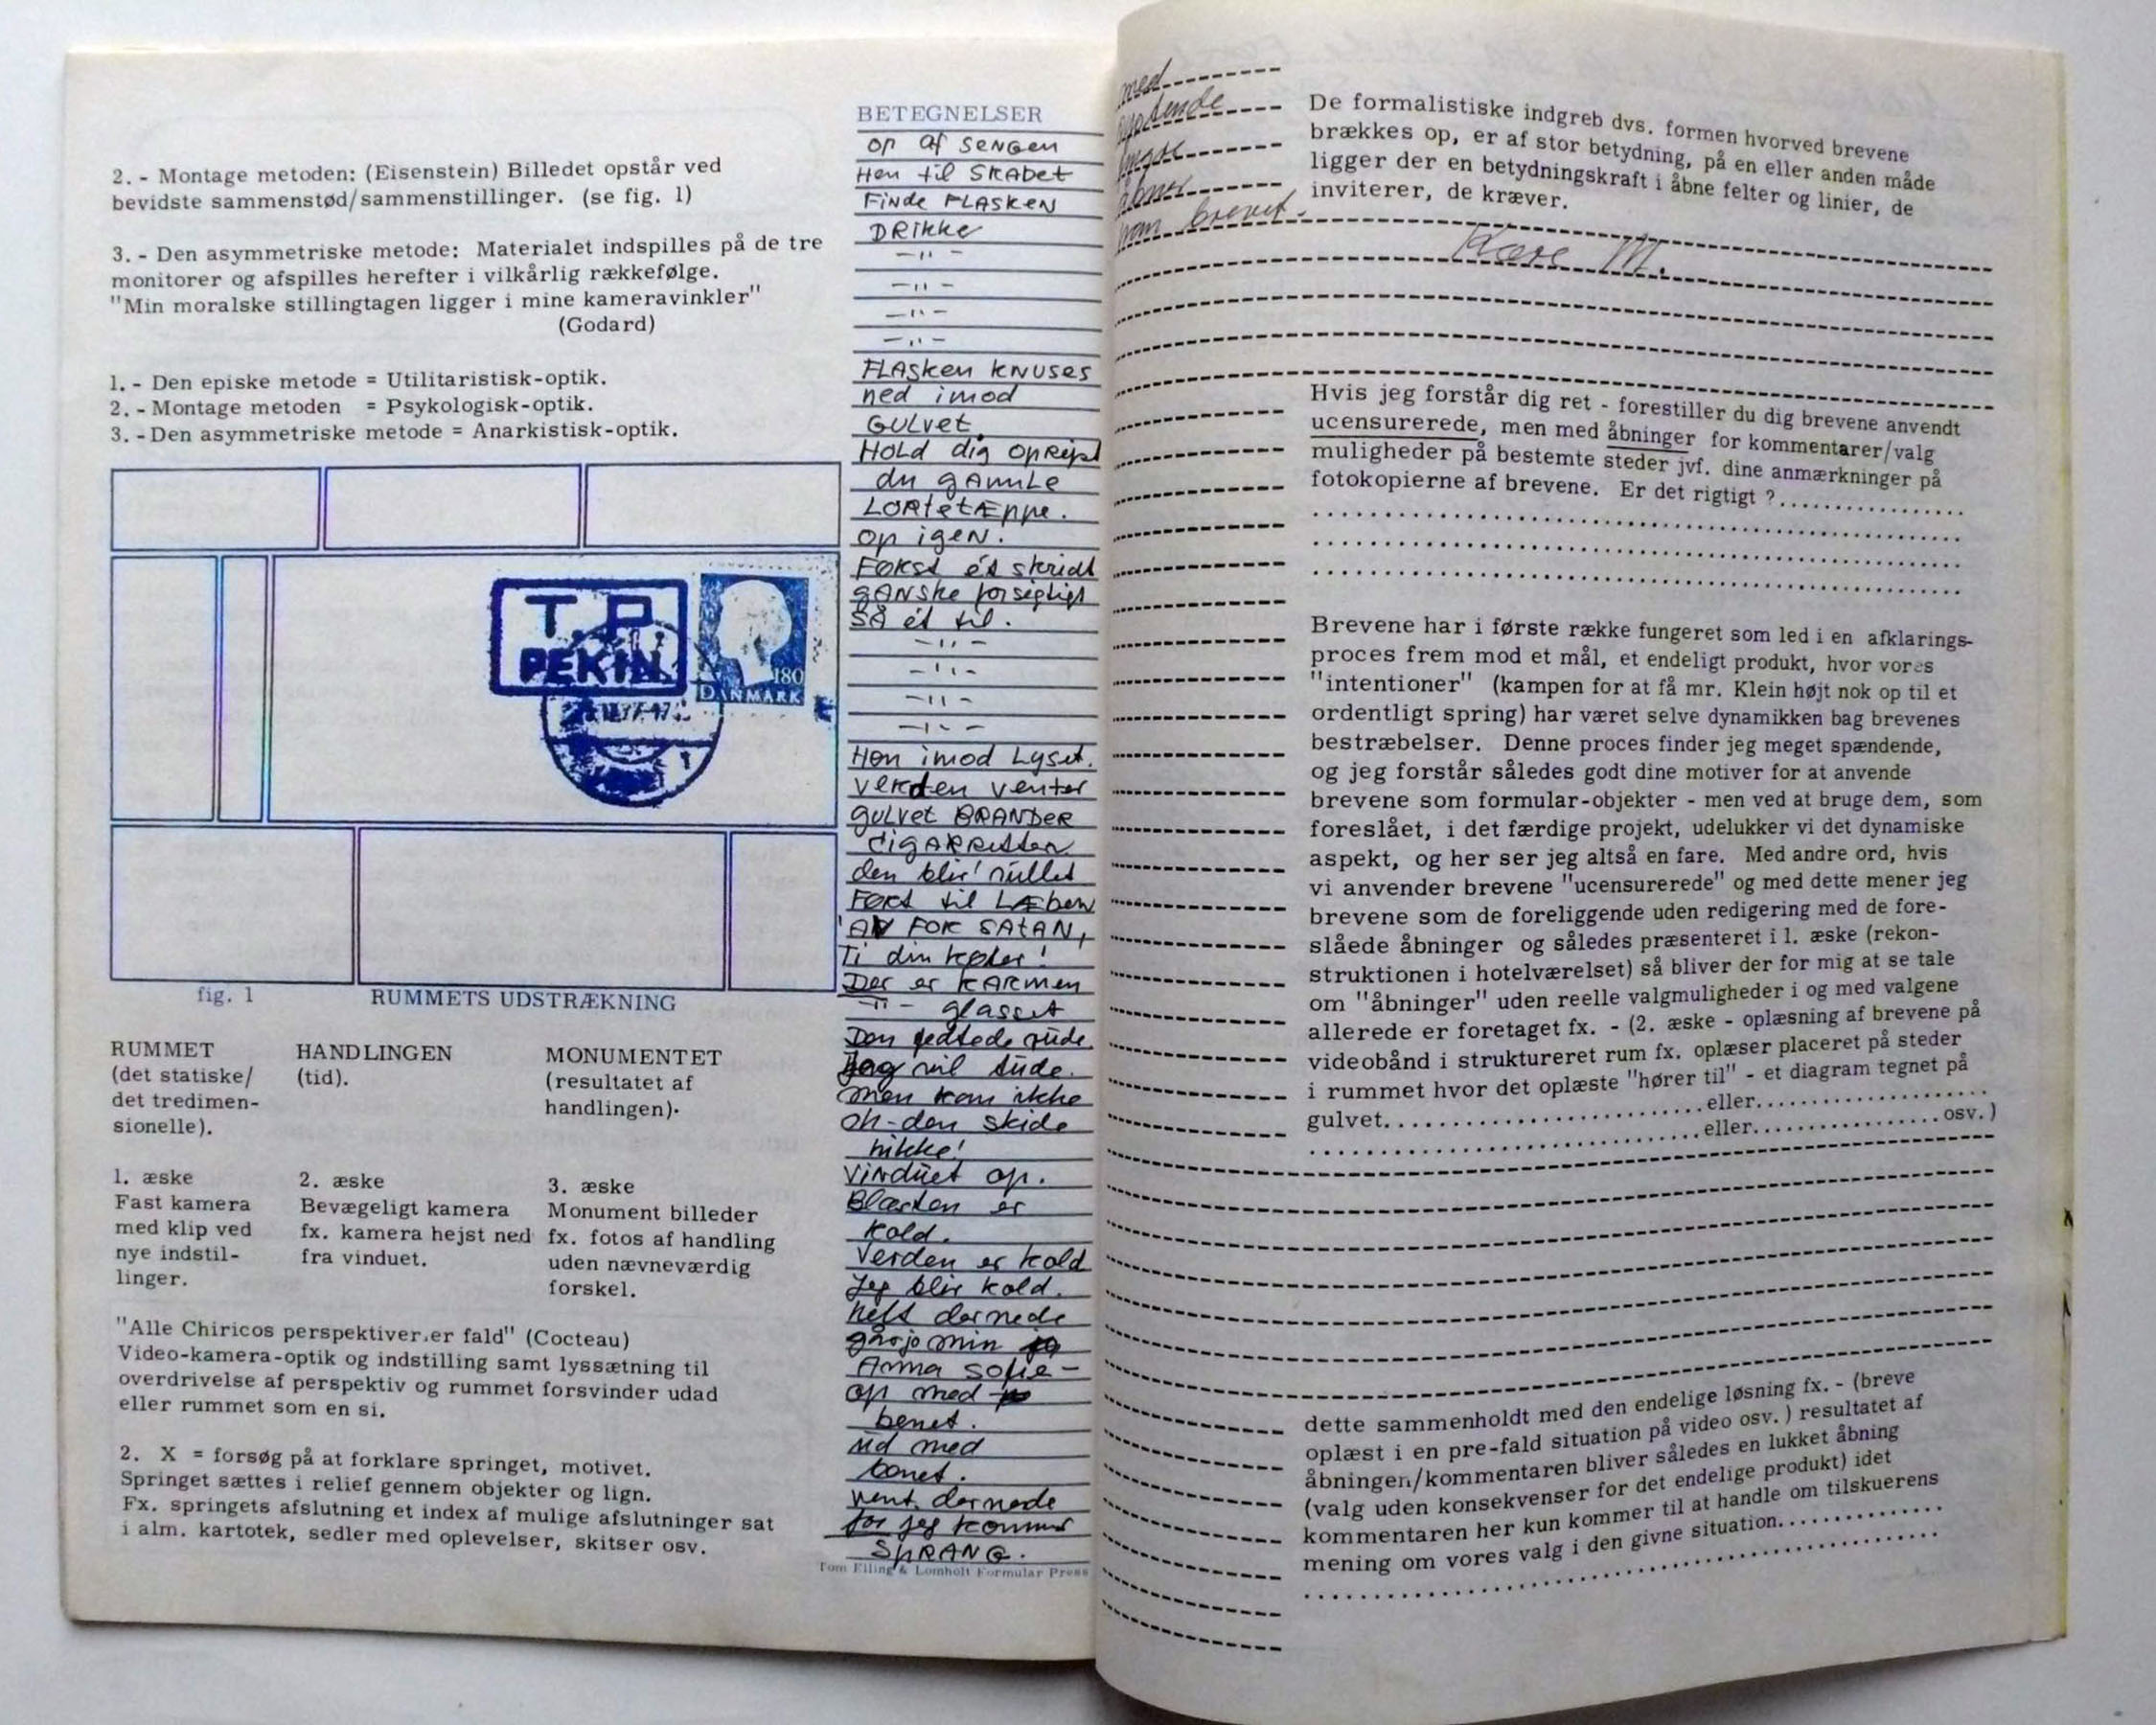 2. - Montage metoden: (Eisenstein) Billedet opstår ved
bevidste sammenstød/sammenstillinger. (se fig. 1)
3. - Den asymmetriske metode: Materialet indspilles på de tre
monitorer og afspilles herefter i vilkårlig rækkefølge.
"Min moralske stillingtagen ligger i mine kameravinkler"
(Godard)
1. - Den episke metode = Utilitaristisk-optik.
2. - Montage metoden = Psykologisk-optik.
3. - Den asymmetriske metode = Anarkistisk-optik.
T.P.
PEKIN
180
DANMARK
fig. 1 RUMMETS UDSTRÆKNING
RUMMET
(det statiske/
det tredimen-
sionelle).
HANDLINGEN
(tid).
MONUMENTET
(resultatet af
handlingen).
1. æske
Fast kamera
med klip ved
nye indstil-
linger.
2. æske
Bevægeligt kamera
fx. kamera hejst ned
fra vinduet.
3. æske
Monument billeder
fx. fotos af handling
uden nævneværdig
forskel.
"Alle Chiricos perspektiver.er fald" (Cocteau)
Video-kamera-optik og indstilling samt lyssætning til
overdrivelse af perspektiv og rummet forsvinder udad
eller rummet som en si.
2. X = forsøg på at forklare springet, motivet.
Springet sættes i relief gennem objekter og lign.
Fx. springets afslutning et index af mulige afslutninger sat
i alm. kartotek, sedler med oplevelser, skitser osv.
BETEGNELSER
op af SENGEN
Hen til SKABet
FINde FLASKEN
DRIKKE
-"-
-"-
-"-
-"-
FLASKEN KNUSES
ned imod
GULVet
HOLd dig OPREJST
du gAMLE
LORTETÆPPE.
op igeN.
FØRST ét skridt
gANSke forsigtigt
SÅ ét til.
-"-
-"-
-"-
-"-
Hen imod Lyset.
verden venter
gulvet BRANDER
cigARRetten
den blir' rullet
Ført til LÆben
AV FOR SATAN,
Ti din køter!
Der er KARMEN
-"- glasset
Den fedtede rude.
Jeg vil tude.
men kan ikke
oh-den skide
hikke!
VINDuet op.
Blæsten er
kold.
Verden er kold
Jeg blir kold.
helt dernede
går jo min
Anna Sofie-
op med
benet.
ud med
benet.
vent dernede
for jeg kommer
SPRANG.
Tom Elling & Lomholt Formular Press
med
åbner
brevet.
De formalistiske indgreb dvs. formen hvorved brevene
brækkes op, er af stor betydning, på en eller anden måde
ligger der en betydningskraft i åbne felter og linier, de
inviterer, de kræver.
Kære M.
Hvis jeg forstår dig ret - forestiller du dig brevene anvendt
ucensurerede, men med åbninger for kommentarer/valg
muligheder på bestemte steder jvf. dine anmærkninger på
fotokopierne af brevene. Er det rigtigt ?.................
Brevene har i første række fungeret som led i en afklarings-
proces frem mod et mål, et endeligt produkt, hvor vores
"intentioner" (kampen for at få mr. Klein højt nok op til et
ordentligt spring) har været selve dynamikken bag brevenes
bestræbelser. Denne proces finder jeg meget spændende,
og jeg forstår således godt dine motiver for at anvende
brevene som formular-objekter - men ved at bruge dem, som
foreslået, i det færdige projekt, udelukker vi det dynamiske
aspekt, og her ser jeg altså en fare. Med andre ord, hvis
vi anvender brevene "ucensurerede" og med dette mener jeg
brevene som de foreliggende uden redigering med de fore-
slåede åbninger og således præsenteret i 1. æske (rekon-
struktionen i hotelværelset) så bliver der for mig at se tale
om "åbninger" uden reelle valgmuligheder i og med valgene
allerede er foretaget fx. - (2. æske - oplæsning af brevene på
videobånd i struktureret rum fx. oplæser placeret på steder
i rummet hvor det oplæste "hører til" - et diagram tegnet på
gulvet..............................eller.....................
....................................eller.................osv.)
dette sammenholdt med den endelige løsning fx. - (breve
oplæst i en pre-fald situation på video osv. ) resultatet af
åbningen/kommentaren bliver således en lukket åbning
(valg uden konsekvenser for det endelige produkt) idet
kommentaren her kun kommer til at handle om tilskuerens
mening om vores valg i den givne situation...............